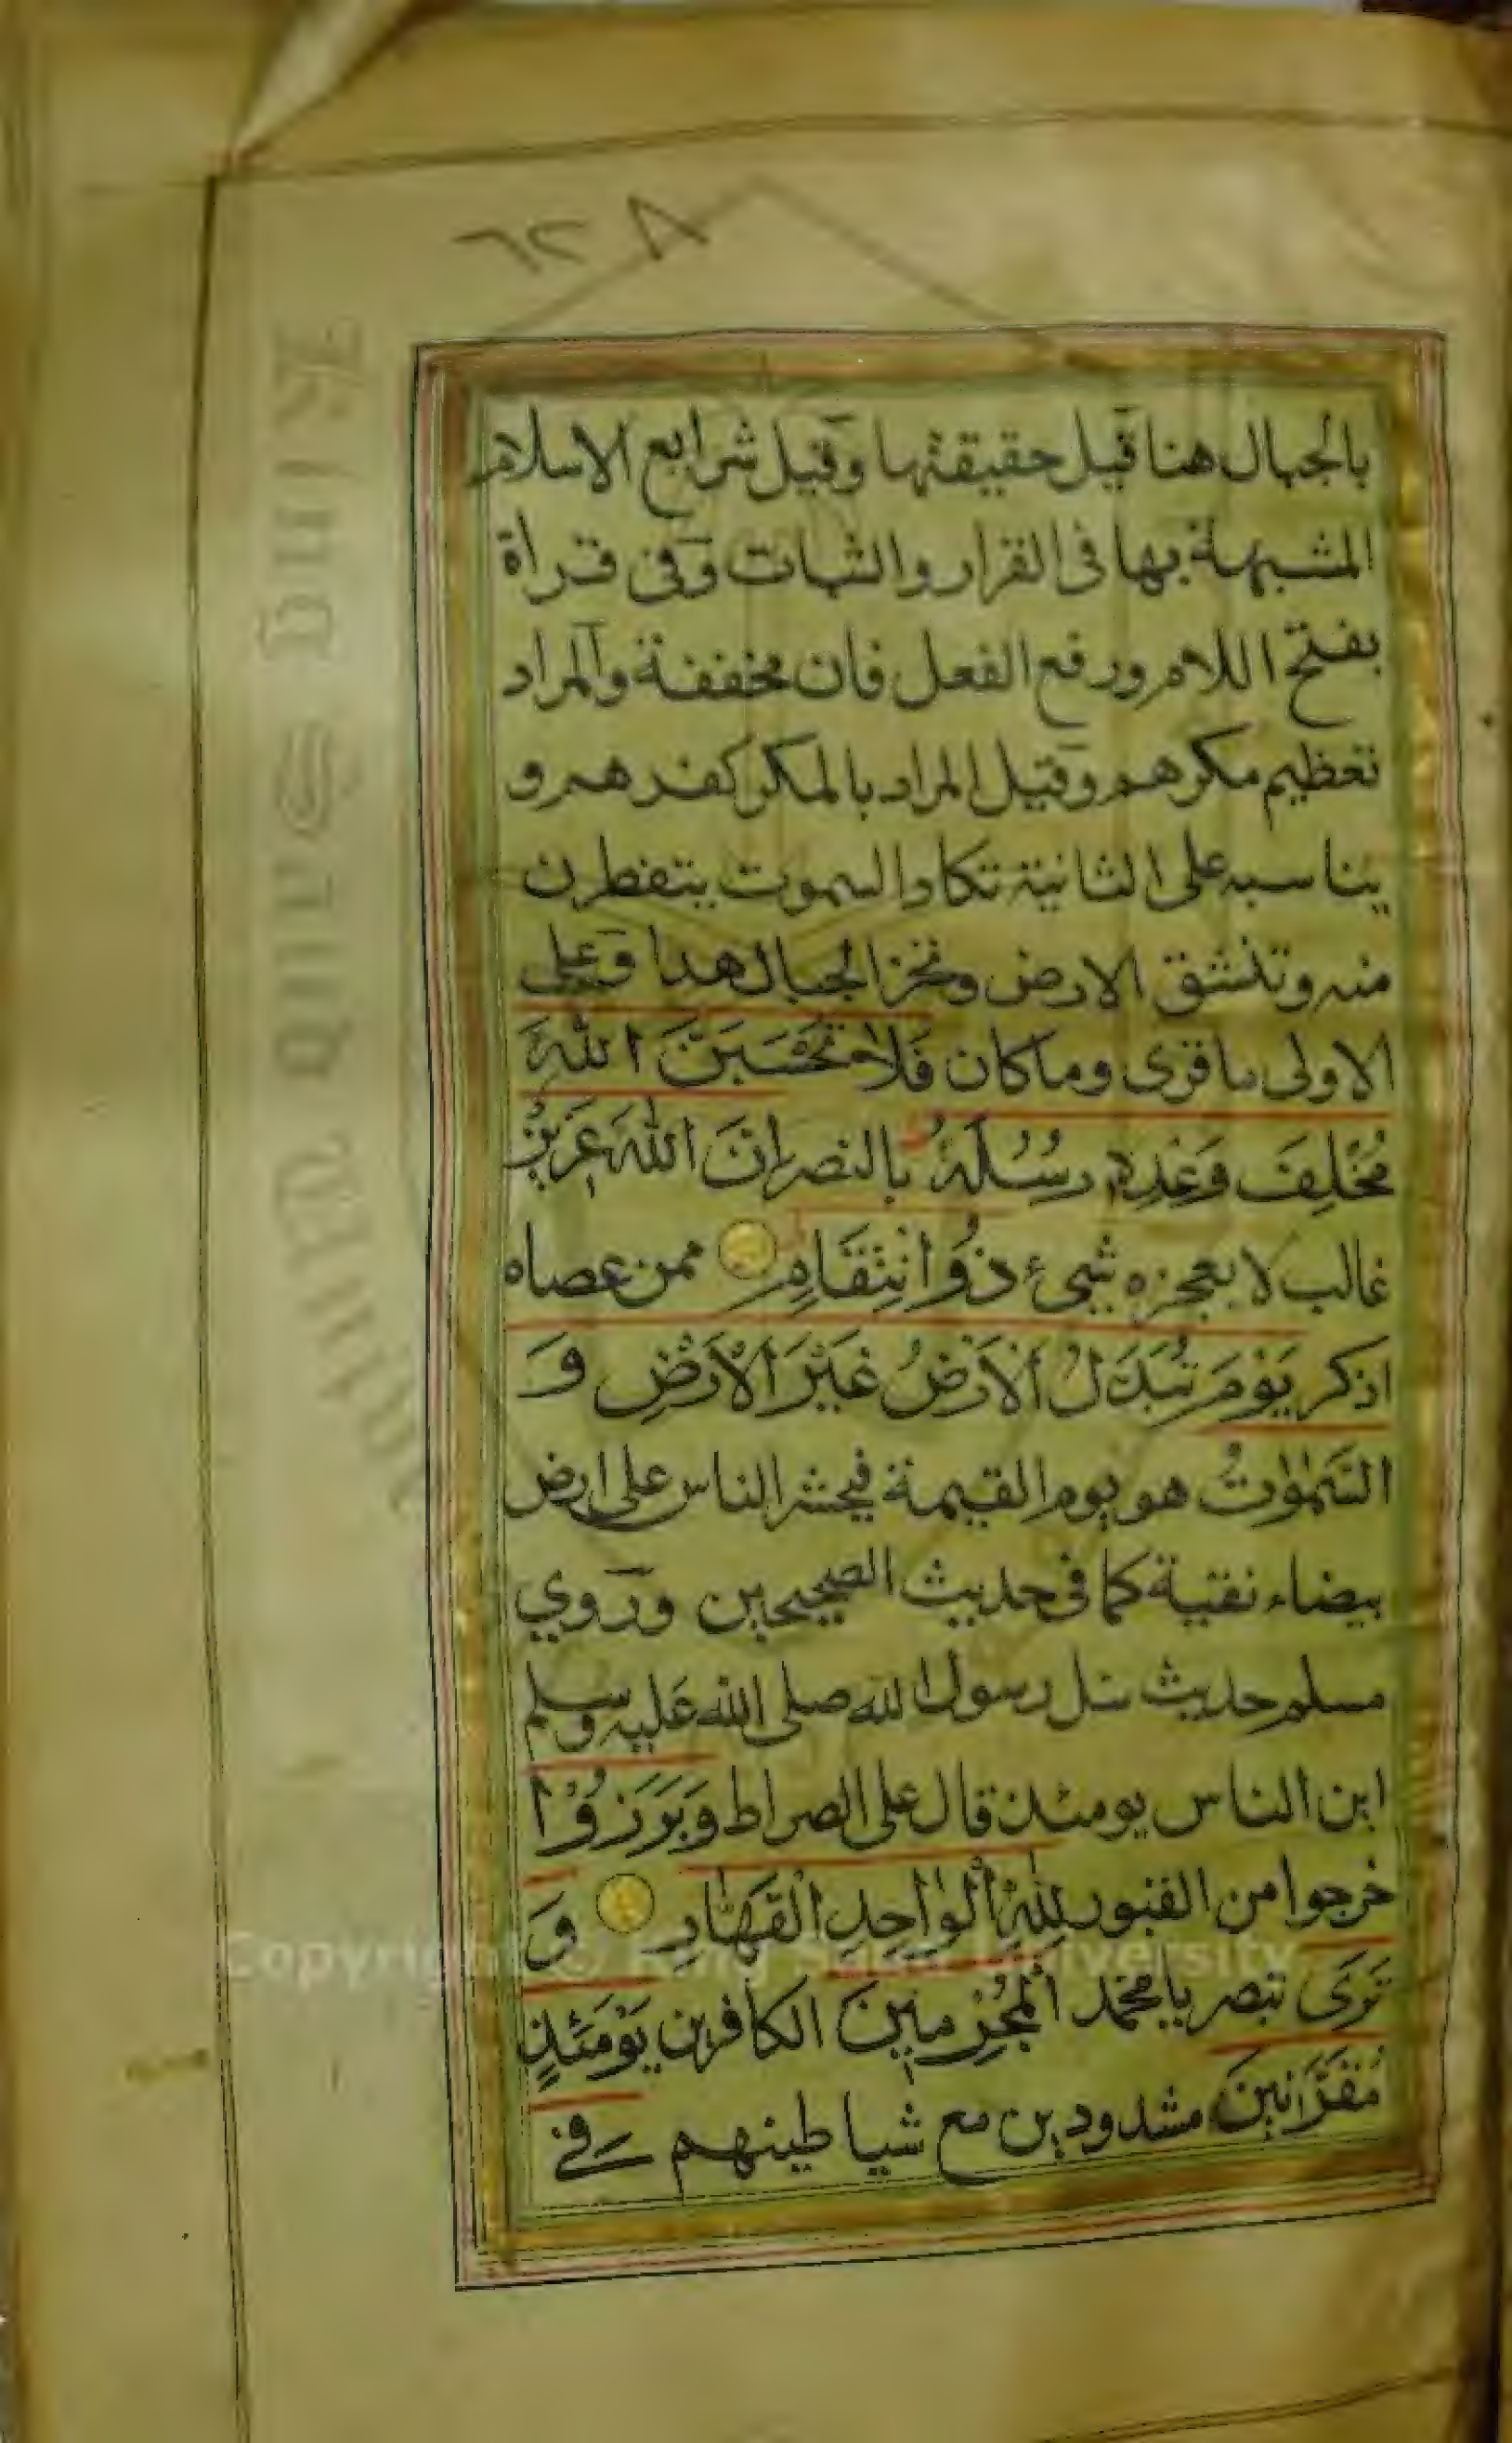 بالجبال هنا قيل حقيقتها وقيل شرايع الاسلام
المشبهة بها فى القرار والثبات وفى قراة
بفتح اللام ورفع الفعل فان مخففة والمراد
تعظيم مكرهم وقيل المراد بالمكر كفرهم و
يناسبه على الثانية تكاد السموت يتفطرن
منه وتنشق الارض وتخر الجبال هدا وعلى
الاولى ما قرى وما كان فَلَا تَحْسَبَنَّ اللهَ
مُخْلِفَ وَعْدِهِ رُسُلَهُ بالنصر اِنَّ اللهَ عَزِيْزٌ
غالب لا يعجزه شيىء ذُو انْتِقَامٍ ممن عصاه
اذكر يَوْمَ تُبَدَّلُ الْاَرْضُ غَيْرَ الْاَرْضِ وَ
السَّمٰوٰتُ هو يوم القيمة فيحشر الناس على ارض
بيضاء نقية كما فى حديث الصحيحين وروي
مسلم حديث سئل رسول الله صلى الله عليه وسلم
اين الناس يومئذ قال على الصراط وَبَرَزُوْا
خرجوا من القبور لِلّٰهِ الْوَاحِدِ الْقَهَّارِ وَ
تَرَى تبصر يا محمد الْمُجْرِمِيْنَ الكافرين يَوْمَئِذٍ
مُقَرَّنِينَ مشدودين مع شياطينهم فِي
Copyright © King Saud University
٦٢٨